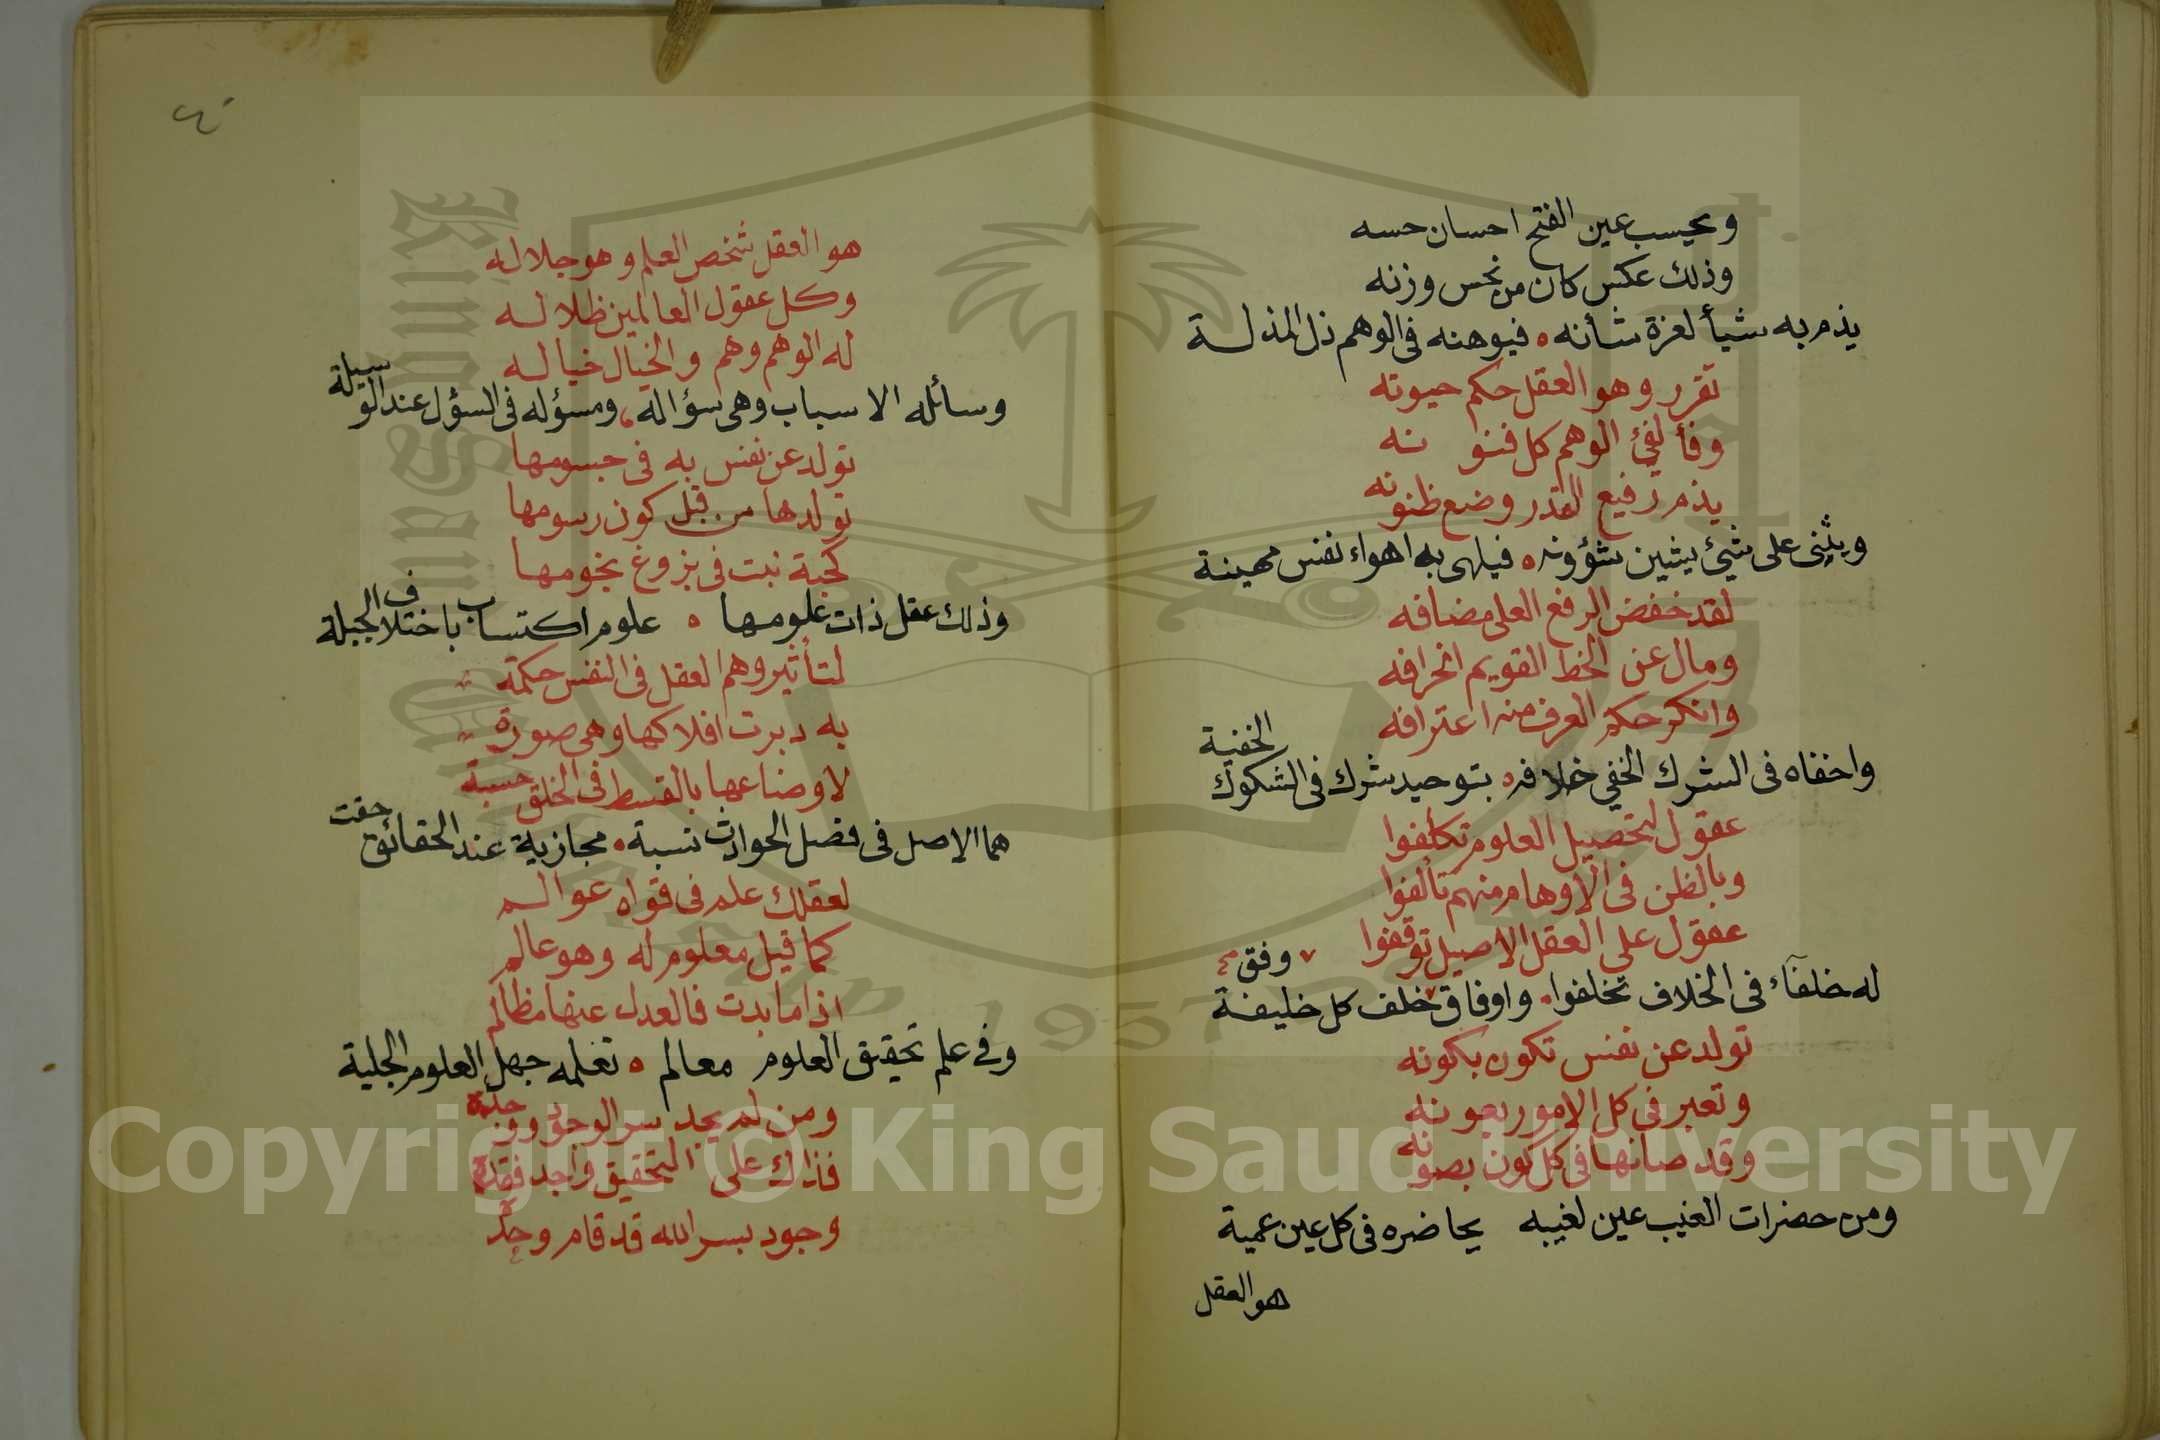 ويحسب عين الفتح احسان حسه
وذلك عكس كان من نحس وزنه
يذم به شيأ لعزة شأنه فيوهنه فى الوهم ذل المذلة
تقرر وهو العقل حكم حيوته
وفأ لفئ الوهم كل فنونه
يذم رفيع القدر وضع ظنونه
ويثنى على شيئ يشين شؤونه فيلهى به اهواء نفس مهينة
لقد خفض الرفع العلى مضافه
ومال عن الخط القويم انحرافه
وانكر حكم العرف منه اعترافه
واخفاه فى الشرك الخفي خلافه بتوحيد شرك فى الشكوك الخفية
عقول لتحصيل العلوم تكلفوا
وبالظن فى الاوهام منهم تألفوا
عقول على العقل الاصيل توقفوا
له خلفآء فى الخلاف تخلفوا واوفاق خلف كل خليفة
وفق
تولد عن نفس تكون بكونه
وتعبر فى كل الامور بعونه
وقد صانها فى كل كون بصونه
ومن حضرات الغيب عين لغيبه يحاضره فى كل عين عمية
هو العقل
هو العقل شخص العلم وهو جلاله
وكل عقول العالمين ظلاله
له الوهم وهم والخيال خياله
وسائله الاسباب وهى سؤاله ومسؤله فى السؤل عند الوسيلة
تولد عن نفس به فى جسومها
تولدها من قبل كون رسومها
كحبة نبت فى بزوغ نجومها
وذلك عقل ذات علومها علوم اكتساب باختلاف الجبلة
لتأثير وهم العقل فى النفس حكمة
به دبرت افلاكها وهى صورة
لاوضاعها بالقسط فى الخلق حسبة
هما الاصل فى فصل الحوادث نسبة مجازية عند الحقائق حقت
لعقلك علم فى قواه عوالم
كما قيل معلوم له وهو عالم
اذا ما بدت فالعدل عنها مظالم
وفى علم تحقيق العلوم معالم تعلمه جهل العلوم الجلية
ومن لم يجد سر الوجود ووجده
فذاك على التحقيق واجد فقده
وجود بسر الله قد قام وحده
Copyright © King Saud University
King Saud University
1957